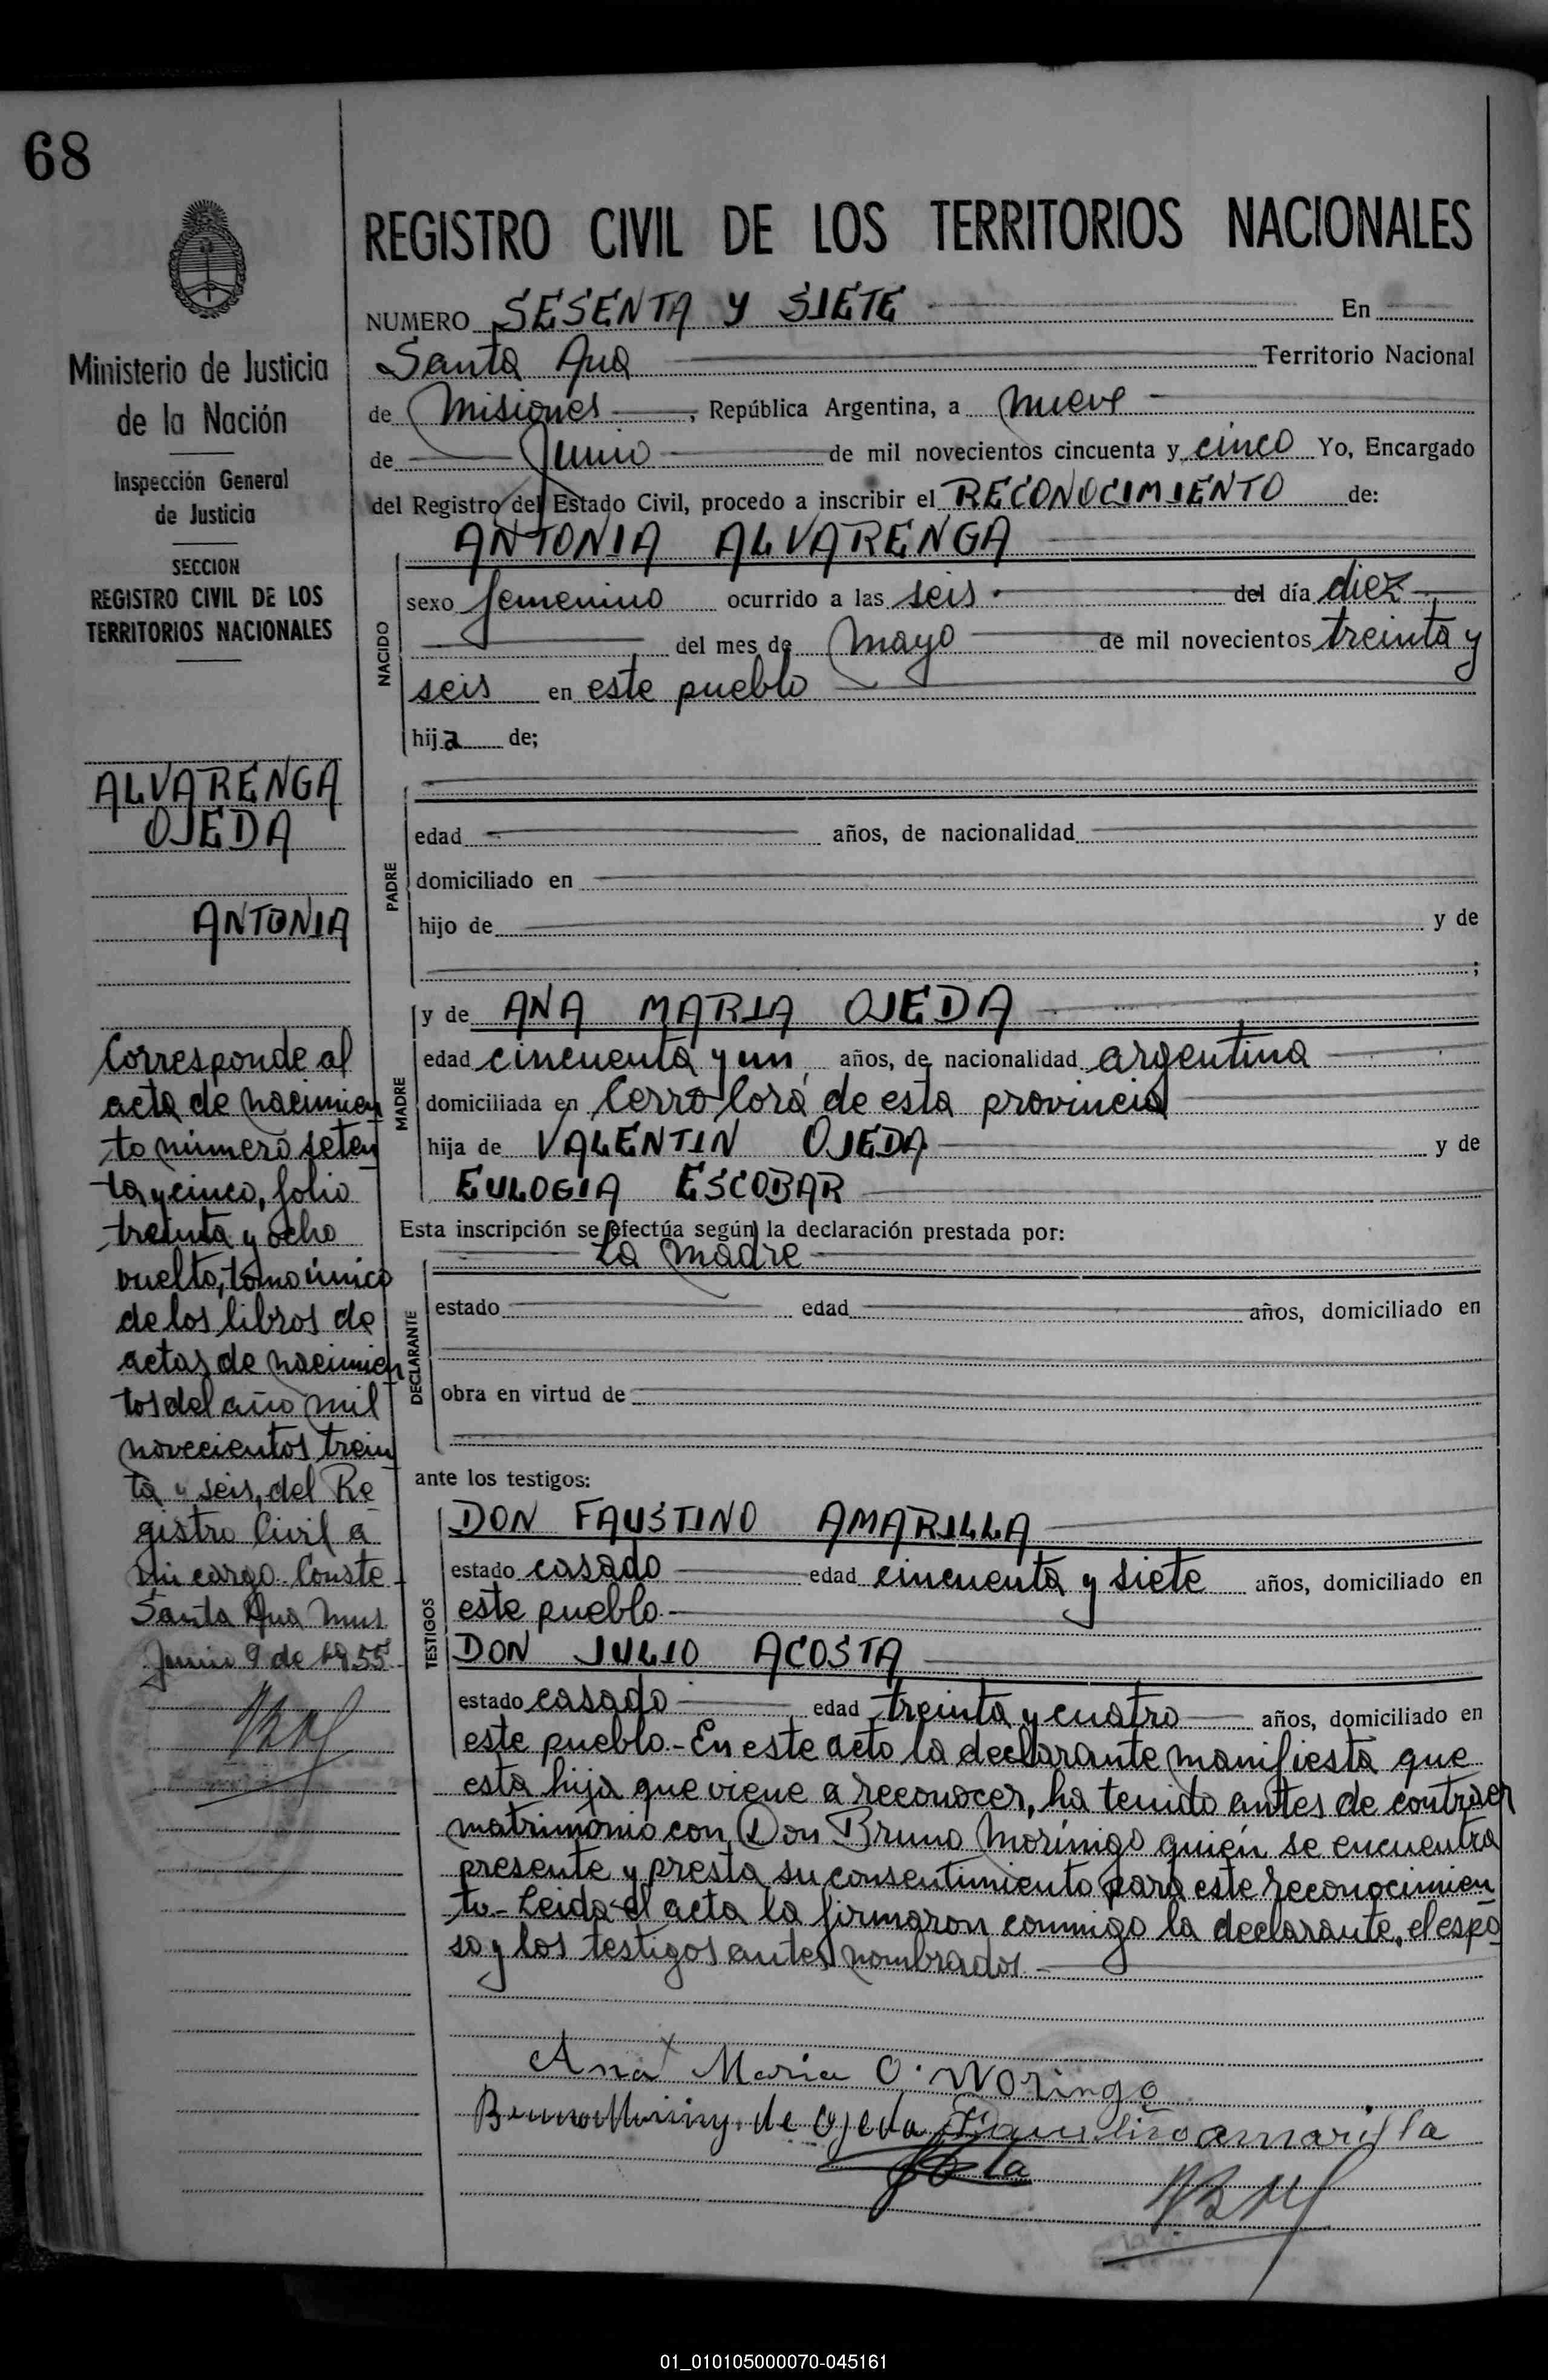 68
Ministerio de Justicia
de la Nación
Inspección General
de Justicia
SECCION
REGISTRO CIVIL DE LOS
TERRITORIOS NACIONALES
ALVARENGA
OJEDA
ANTONIA
Corresponde al
acta de nacimien
to número seten
ta y cinco, folio
treinta y ocho
vuelto, tomo único
de los libros de
actas de nacimien
tos del año mil
novecientos trein
ta y seis, del Re
gistro Civil a
mi cargo. Conste
Santa Ana Mnes
Junio 9 de 1955
REGISTRO CIVIL DE LOS TERRITORIOS NACIONALES
NUMERO SESENTA Y SIETE En
Santa Ana Territorio Nacional
de Misiones, República Argentina, a nueve
de Junio de mil novecientos cincuenta y cinco Yo, Encargado
del Registro del Estado Civil, procedo a inscribir el RECONOCIMIENTO de:
ANTONIA ALVARENGA
NACIDO
sexo femenino ocurrido a las seis del día diez
del mes de mayo de mil novecientos treinta y
seis en este pueblo
hija de;
PADRE
edad años, de nacionalidad
domiciliado en
hijo de y de
;
MADRE
y de ANA MARIA OJEDA
edad cincuenta y un años, de nacionalidad argentina
domiciliada en Cerro Corá de esta provincia
hija de VALENTIN OJEDA y de
EULOGIA ESCOBAR
Esta inscripción se efectúa según la declaración prestada por:
La madre
DECLARANTE
estado edad años, domiciliado en
obra en virtud de
ante los testigos:
TESTIGOS
DON FAUSTINO AMARILLA
estado casado edad cincuenta y siete años, domiciliado en
este pueblo.-
DON JULIO ACOSTA
estado casado edad treinta y cuatro años, domiciliado en
este pueblo.- En este acto la declarante manifiesta que
esta hija que viene a reconocer, ha tenido antes de contraer
matrimonio con Don Bruno Morínigo quién se encuentra
presente y presta su consentimiento para este reconocimien
to- Leida el acta la firmaron conmigo la declarante, el espo
so y los testigos antes nombrados.-
Ana Maria O. Moringo
de Ojeda Faustino amarilla
01_010105000070-045161